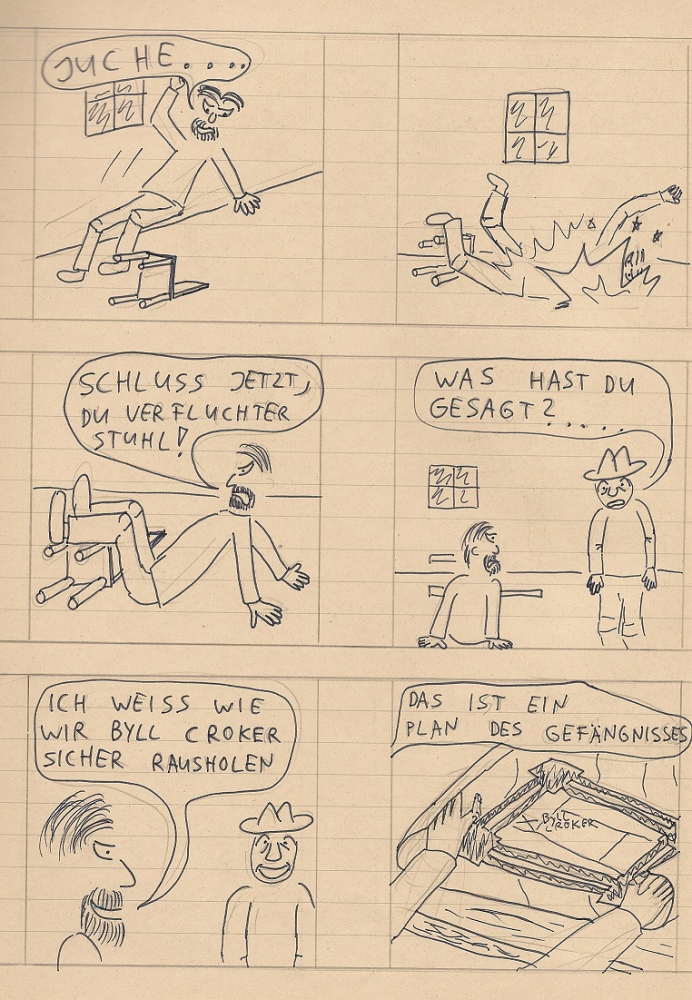 JUCHE.....
SCHLUSS JETZT,
DU VERFLUCHTER
STUHL!
WAS HAST DU
GESAGT?.....
ICH WEISS WIE
WIR BYLL CROKER
SICHER RAUSHOLEN
DAS IST EIN
PLAN DES GEFÄNGNISSES
X BYLL
CROKER